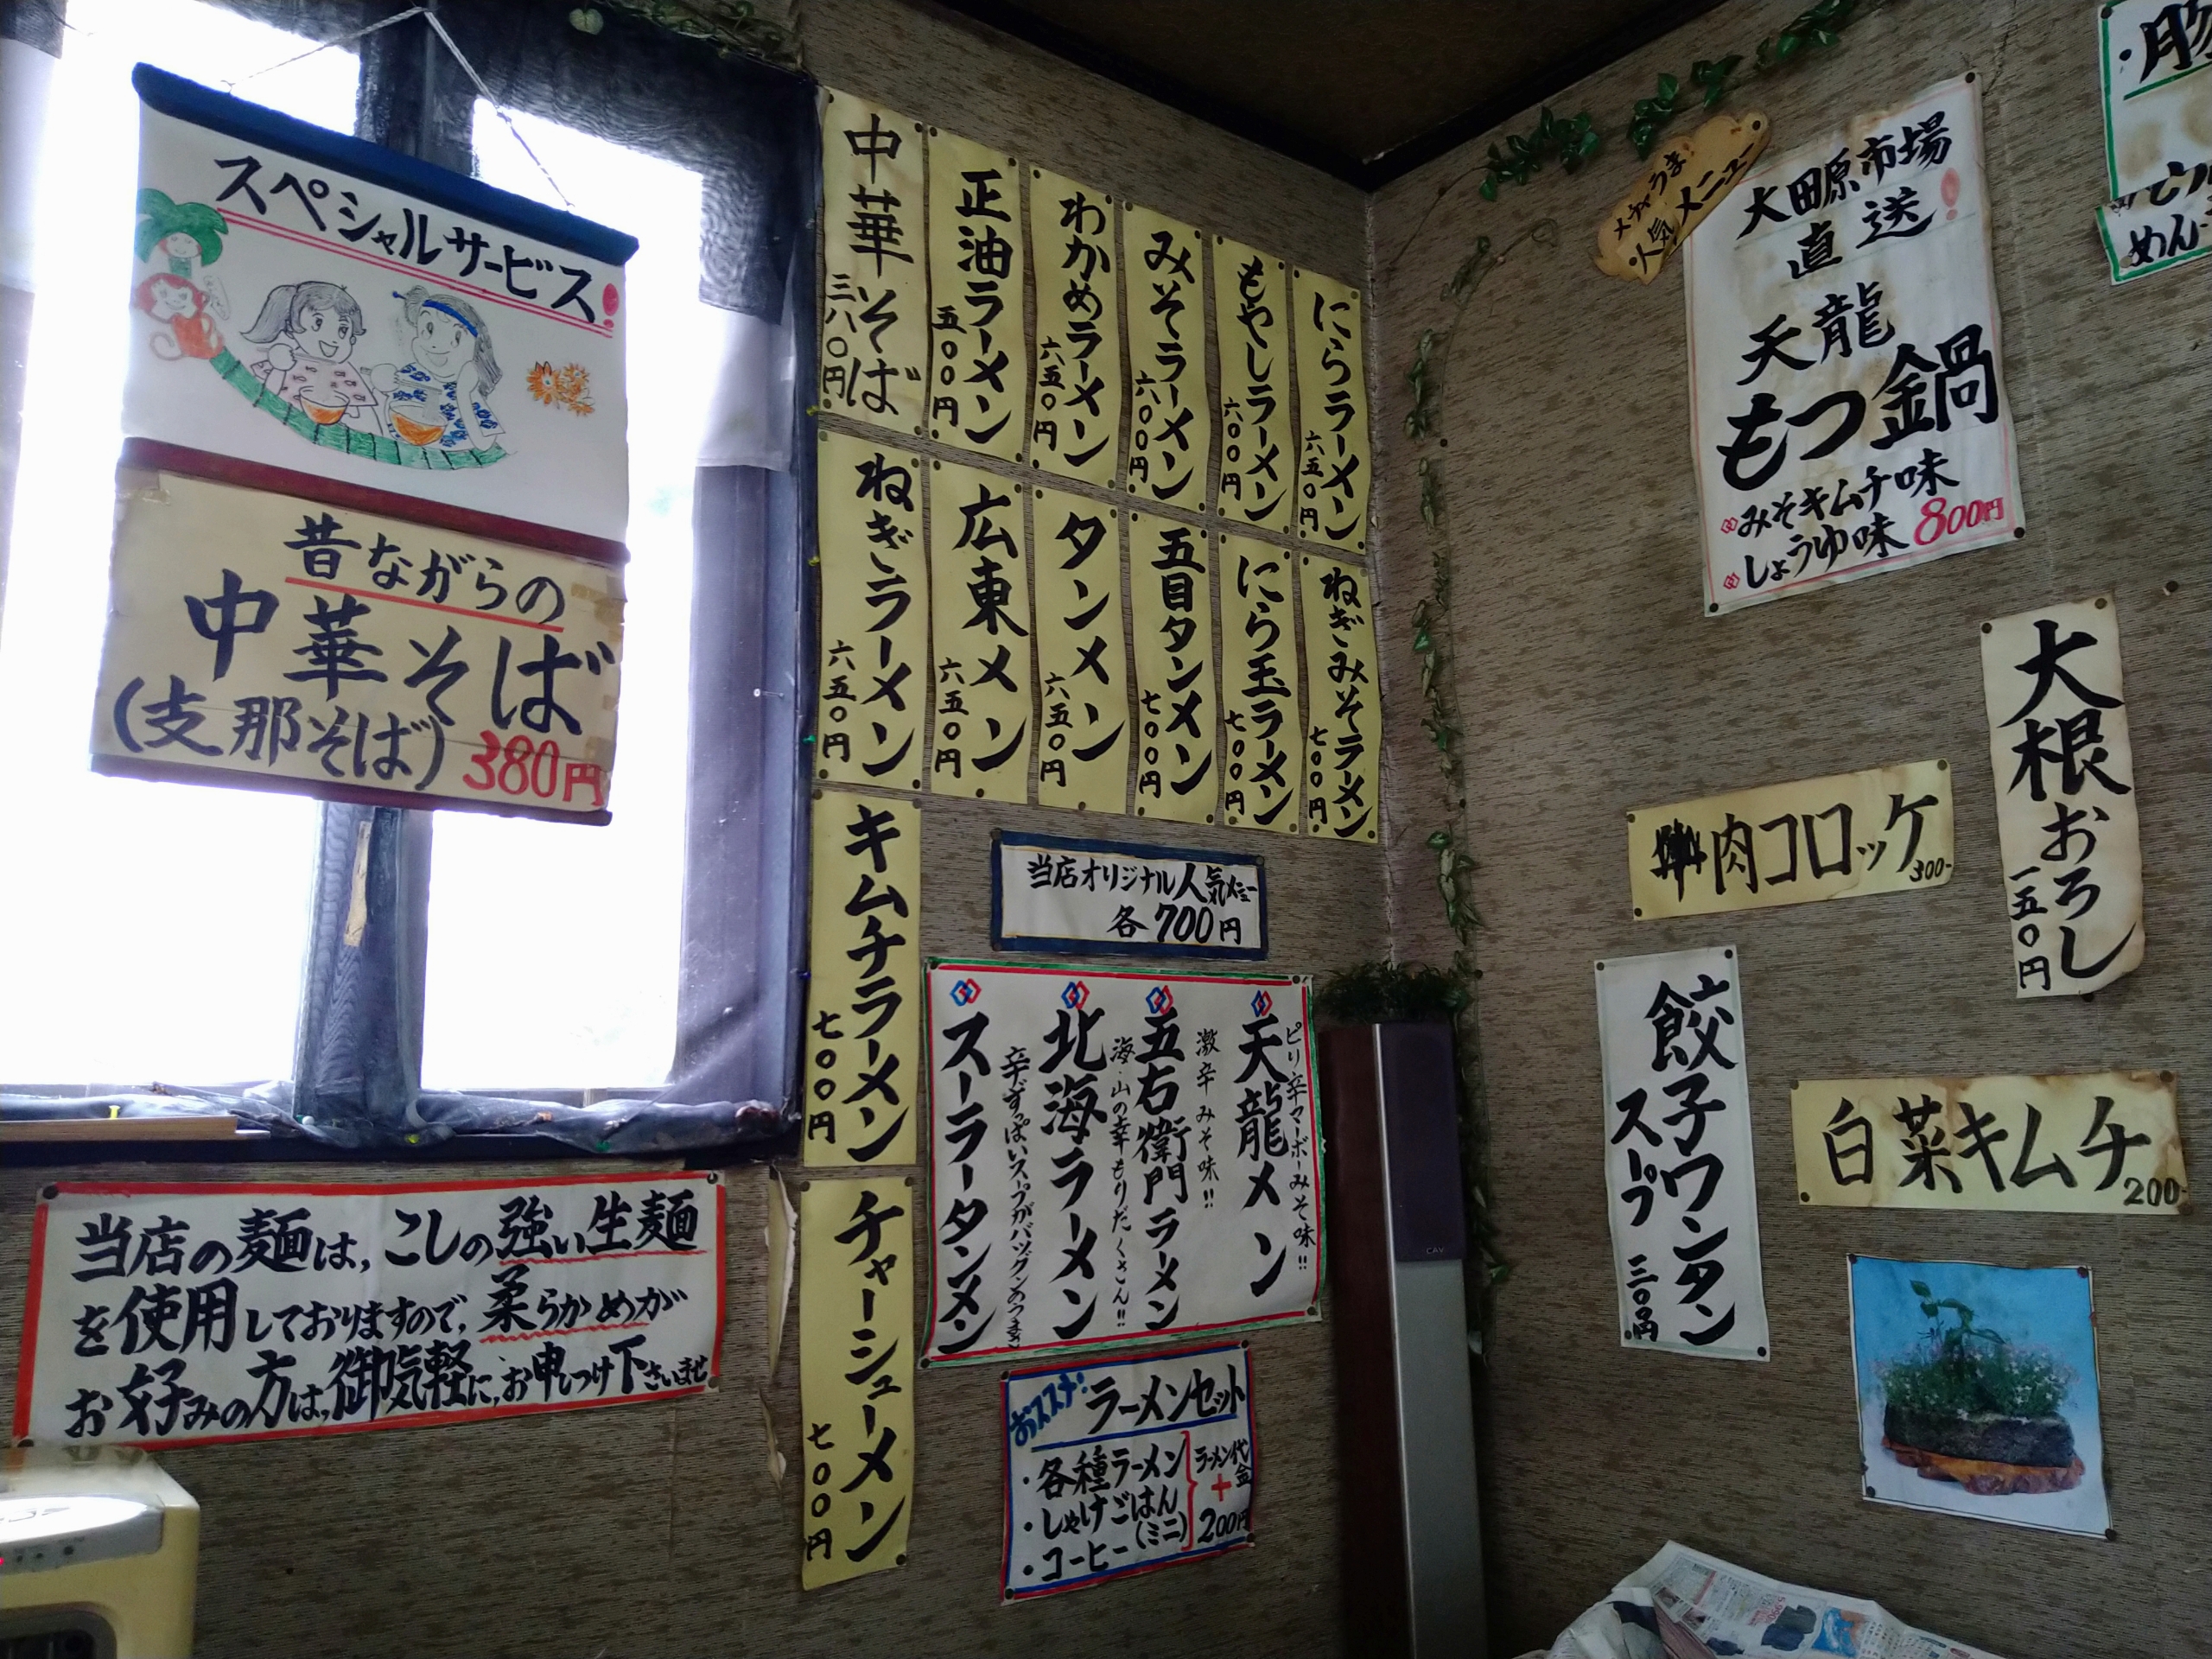 スペシャルサービス!
昔ながらの
中華そば
(支那そば) 380円
当店の麺は、こしの強い生麺
を使用しておりますので、柔らかめが
お好みの方は、御気軽に、お申しつけ下さいませ
中華そば 三八〇円
正油ラーメン 五〇〇円
わかめラーメン 六五〇円
みそラーメン 六〇〇円
もやしラーメン 六〇〇円
にらラーメン 六五〇円
ねぎラーメン 六五〇円
広東メン 六五〇円
タンメン 六五〇円
五目タンメン 七〇〇円
にら玉ラーメン 七〇〇円
ねぎみそラーメン 七〇〇円
キムチラーメン 七〇〇円
チャーシューメン 七〇〇円
当店オリジナル人気メニュー
各700円
ピリ辛マーボーみそ味!!
天龍メン
激辛みそ味!!
五右衛門ラーメン
海・山の幸もりだくさん!!
北海ラーメン
辛ずっぱいスープがバツグンのうまさ
スーラータンメン
おススメ!
ラーメンセット
・各種ラーメン
・しゃけごはん
(ミニ)
・コーヒー
ラーメン代金
+
200円
メチャうま!
人気メニュー
大田原市場
直送!
天龍
もつ鍋
みそキムチ味
しょうゆ味 800円
大根おろし 一五〇円
肉コロッケ 300-
餃子ワンタン
スープ 三〇〇円
白菜キムチ 200-
CAV